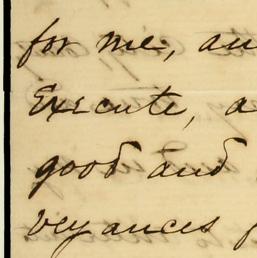 for me, an
Execute, a
good and
veyances f